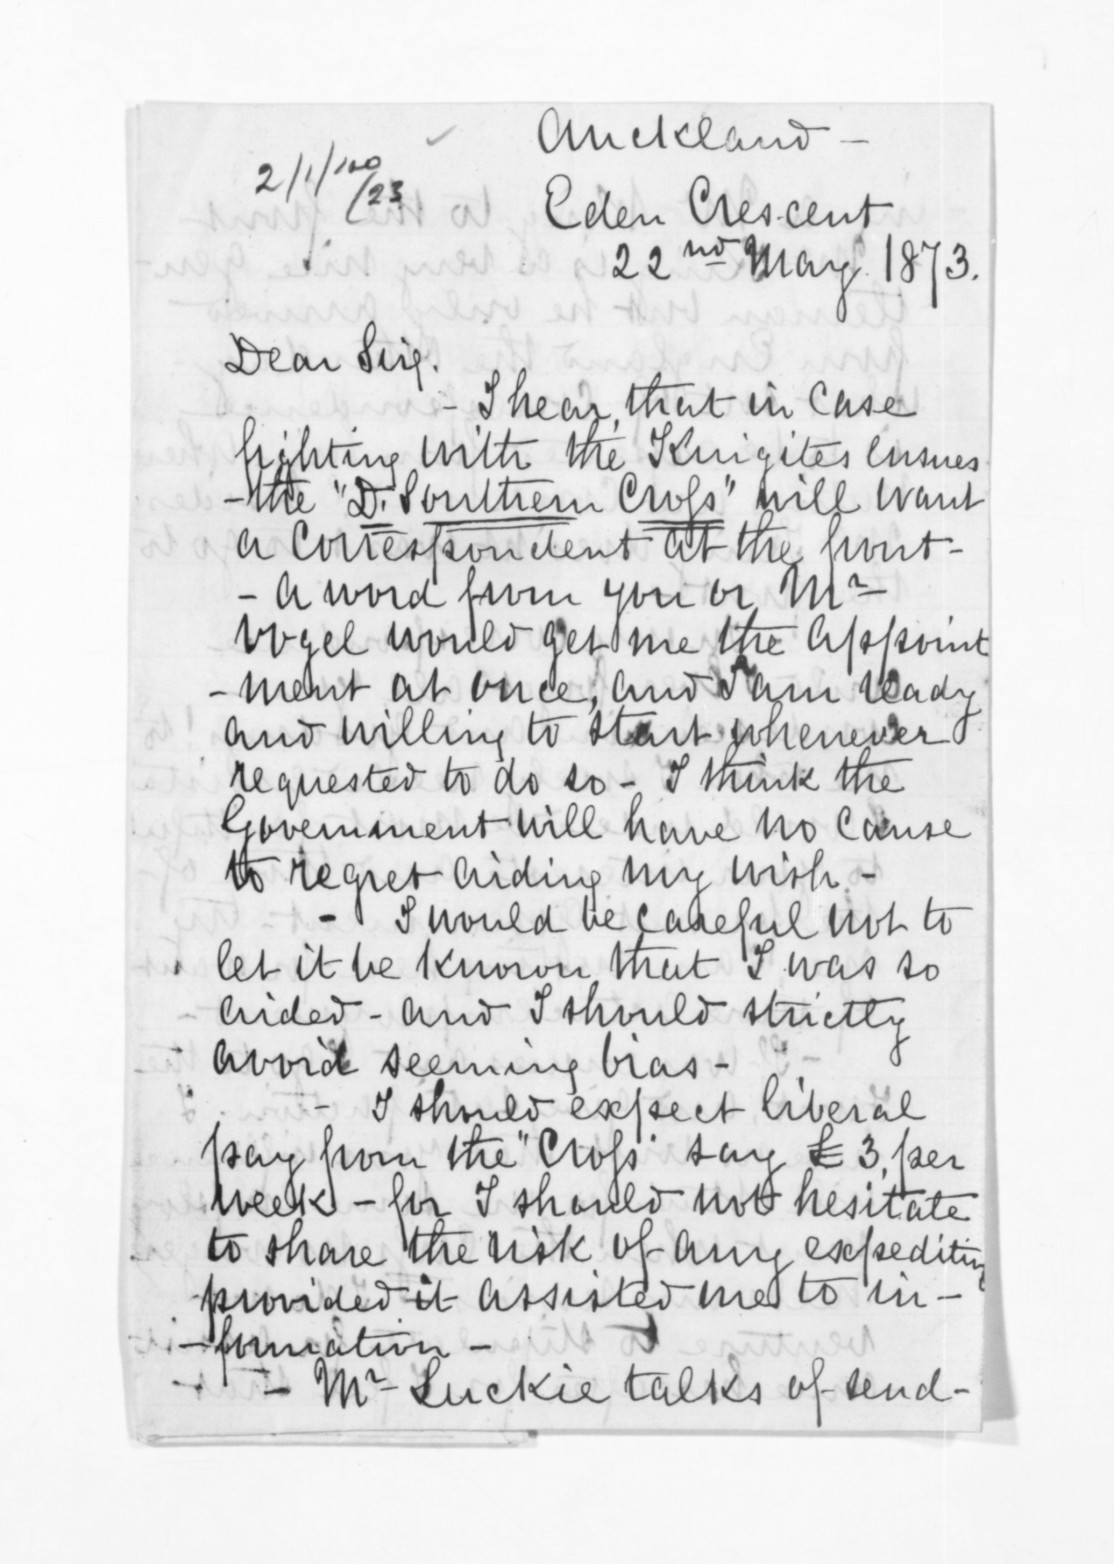 Auckland -
2/1/100/23
Eden Crescent
22nd May 1873.
Dear Sir,
- I hear, that in case
fighting with the Kingites ensues
- the "D. Southern Cross" will want
a Correspondent at the front -
- A word from you or Mr
Vogel would get me the appoint
- ment at once, and I am ready
and willing to start whenever
requested to do so - I think the
Government will have no cause
to regret aiding my wish -
- I would be careful not to
let it be known that I was so
aided - and I should strictly
avoid seeming bias -
- I should expect liberal
pay from the "Cross" say £3, per
week - for I should not hesitate
to share the risk of any expedition
provided it assisted me to in -
- formation -
- Mr Luckie talks of send -